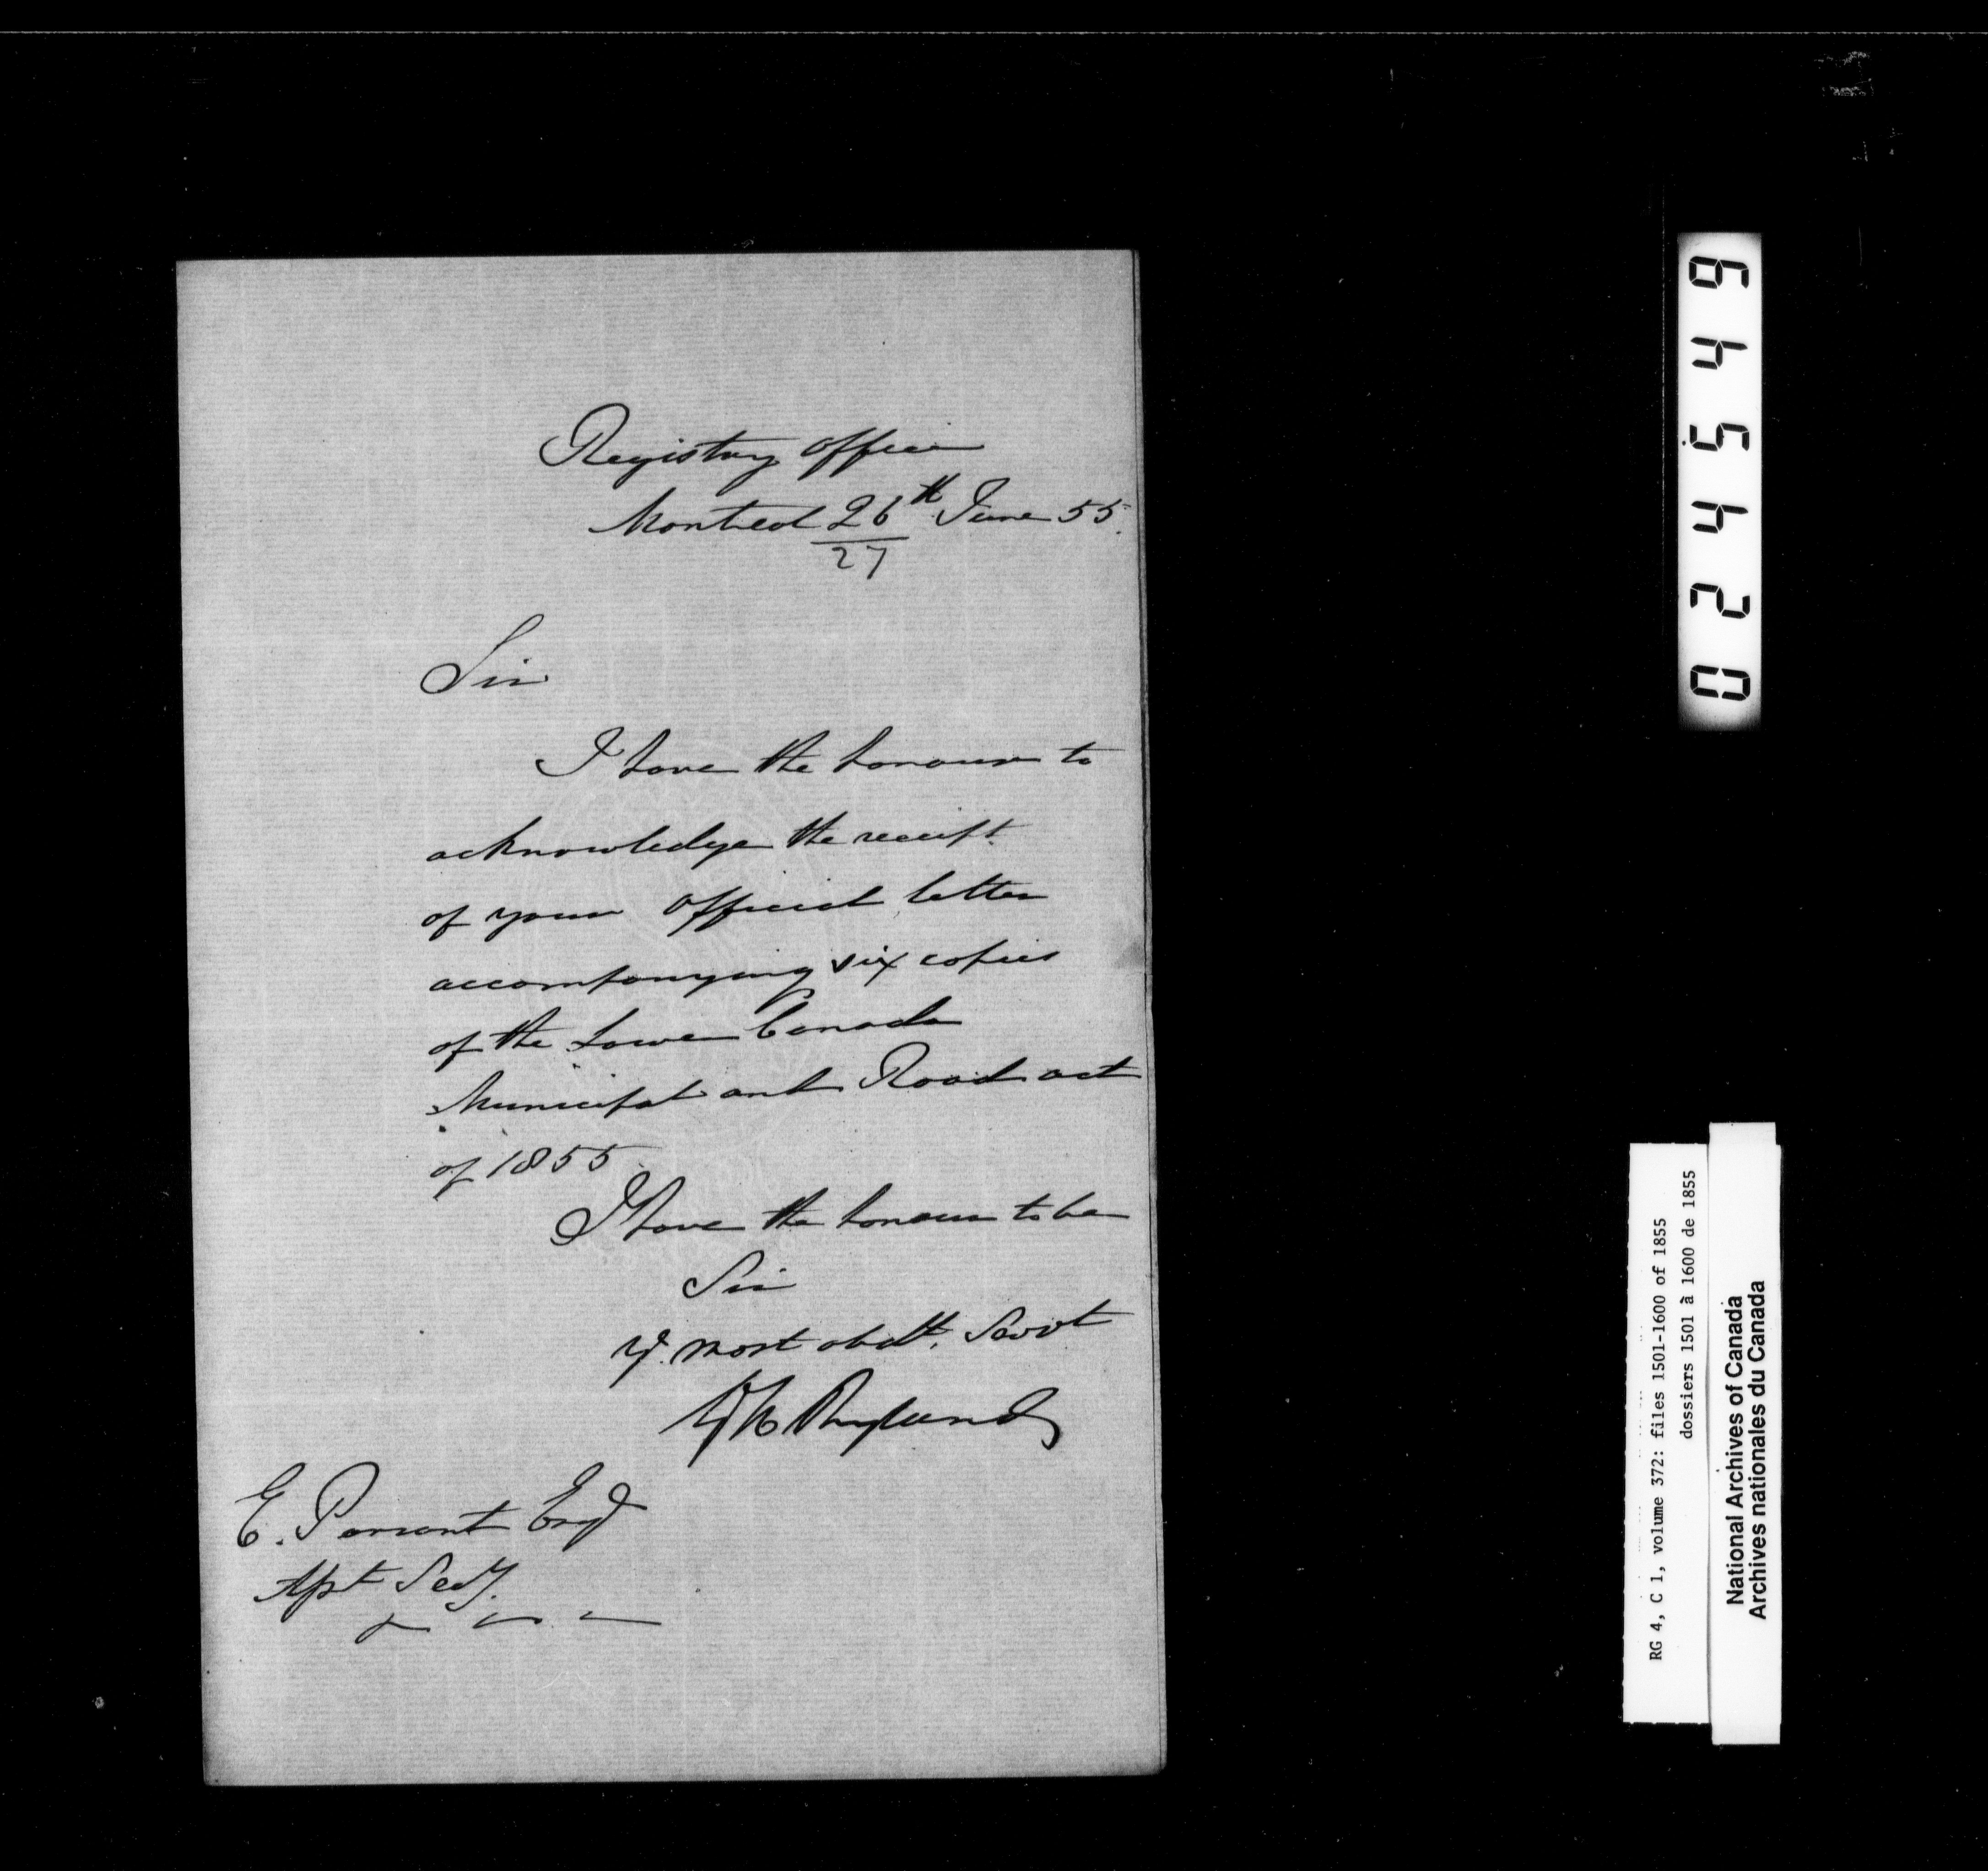 Registry Office
Montreal 26th June 55.
27
Sir
I have the honour to
acknowledge the receipt
of your Official letter
accompanying six copies
of the Lower Canada
Municipal and Road act
of 1855.
I have the honour to be
Sir
Yr. most obdt. Servt
G H Ryland
E. Parent Esqr
Asst Secy.
024549
RG 4, C 1, volume 372: files 1501-1600 of 1855
dossiers 1501 à 1600 de 1855
National Archives of Canada
Archives nationales du Canada